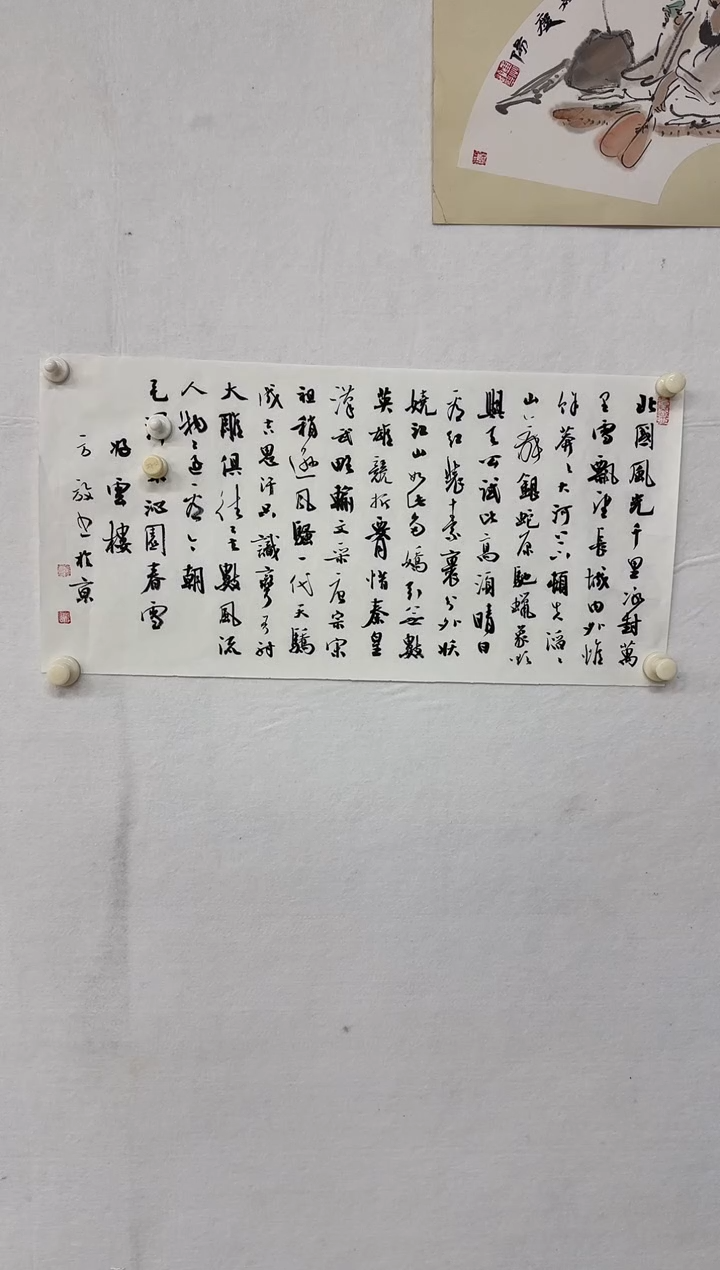 瘦
陽
北國風光千里冰封萬
里雪飄望長城内外惟
餘莽〻大河上下頓失滔〻
山舞銀蛇原馳蠟象欲
與天公試比高須晴日
看紅裝素裹分外妖
嬈江山如此多嬌引無數
英雄競折腰惜秦皇
漢武略輸文采唐宗宋
祖稍遜風騷一代天驕
成吉思汗只識彎弓射
大雕俱往矣數風流
人物还看今朝
毛沁園春雪
雲樓
方毅书於京